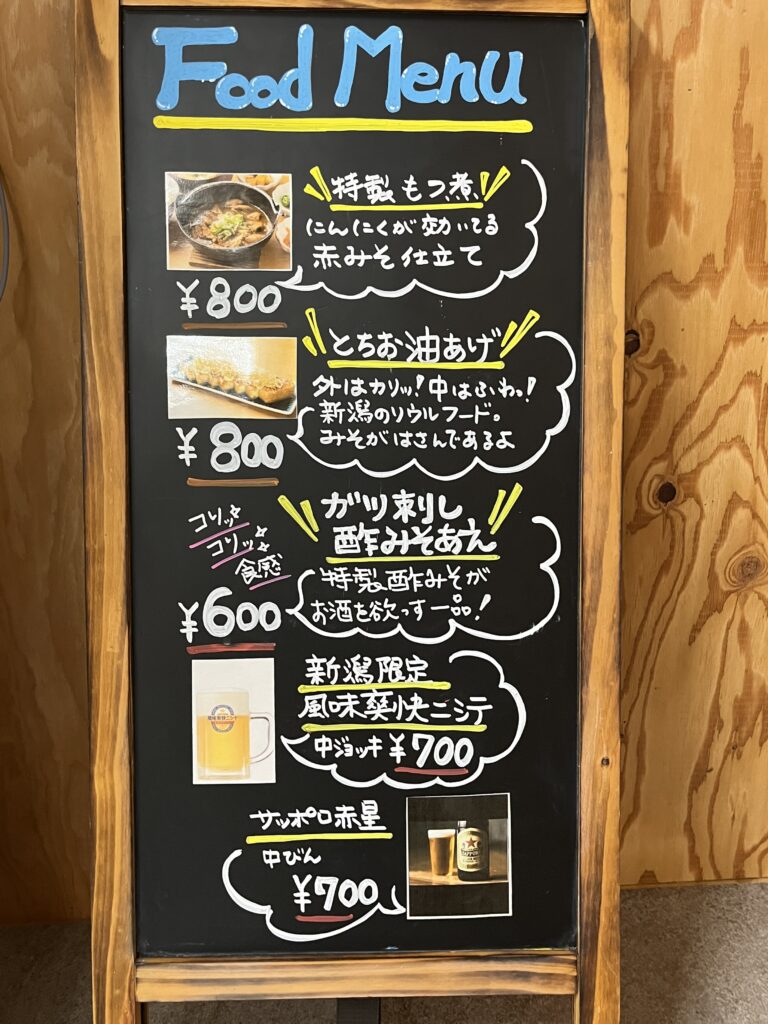 Food Menu
特製もつ煮
にんにくが効いてる
赤みそ仕立て
¥800
とちお油あげ
外はカリッ!中はふわっ!
新潟のソウルフード。
みそがはさんであるよ
¥800
ガツ刺し
酢みそあえ
コリッ
コリッ
食感
特製酢みそが
お酒を欲っす一品!
¥600
新潟限定
風味爽快ニシテ
中ジョッキ ¥700
風味爽快ニシテ
サッポロ赤星
中びん
¥700